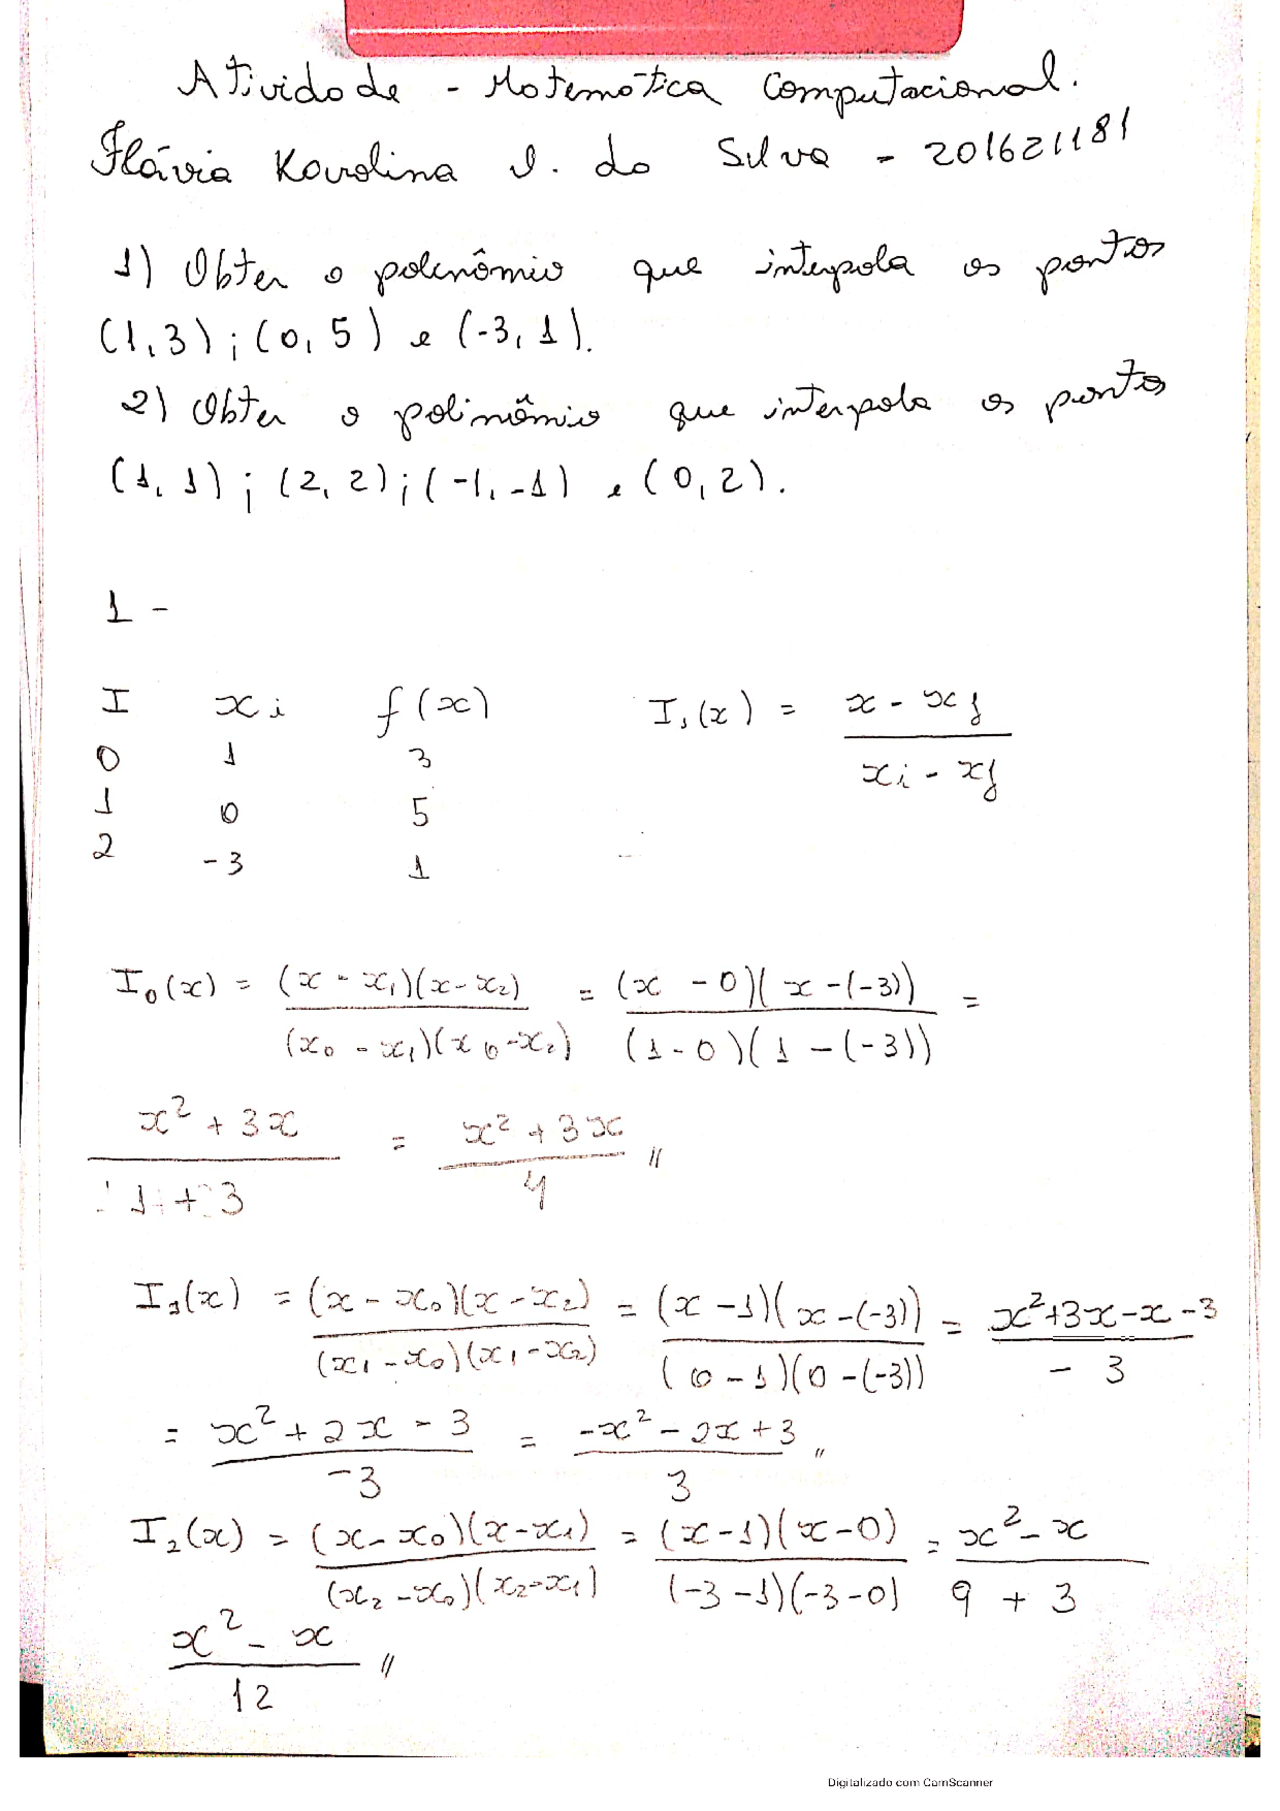 Atividade - Matemática Computacional.
Flávia Karolina S. da Silva - 201621181
1) Obter o polinômio que interpola os pontos
(1,3);(0,5) e (-3,1).
2) Obter o polinômio que interpola os pontos
(1,1);(2,2);(-1,-1) e (0,2).
1 -
I xi f(x) I₁(x) = (x - xj)/(xi - xj)
0 1 3
1 0 5
2 -3 1
I₀(x) = (x - x₁)(x - x₂)/(x₀ - x₁)(x₀ - x₂) = (x - 0)(x - (-3))/(1 - 0)(1 - (-3)) =
x² + 3x/1 + 3 = x² + 3x/4 //
I₁(x) = (x - x₀)(x - x₂)/(x₁ - x₀)(x₁ - x₂) = (x - 1)(x - (-3))/(0 - 1)(0 - (-3)) = x² + 3x - x - 3/-3
= x² + 2x - 3/-3 = -x² - 2x + 3/3 //
I₂(x) = (x - x₀)(x - x₁)/(x₂ - x₀)(x₂ - x₁) = (x - 1)(x - 0)/(-3 - 1)(-3 - 0) = x² - x/9 + 3
x² - x/12 //
Digitalizado com CamScanner